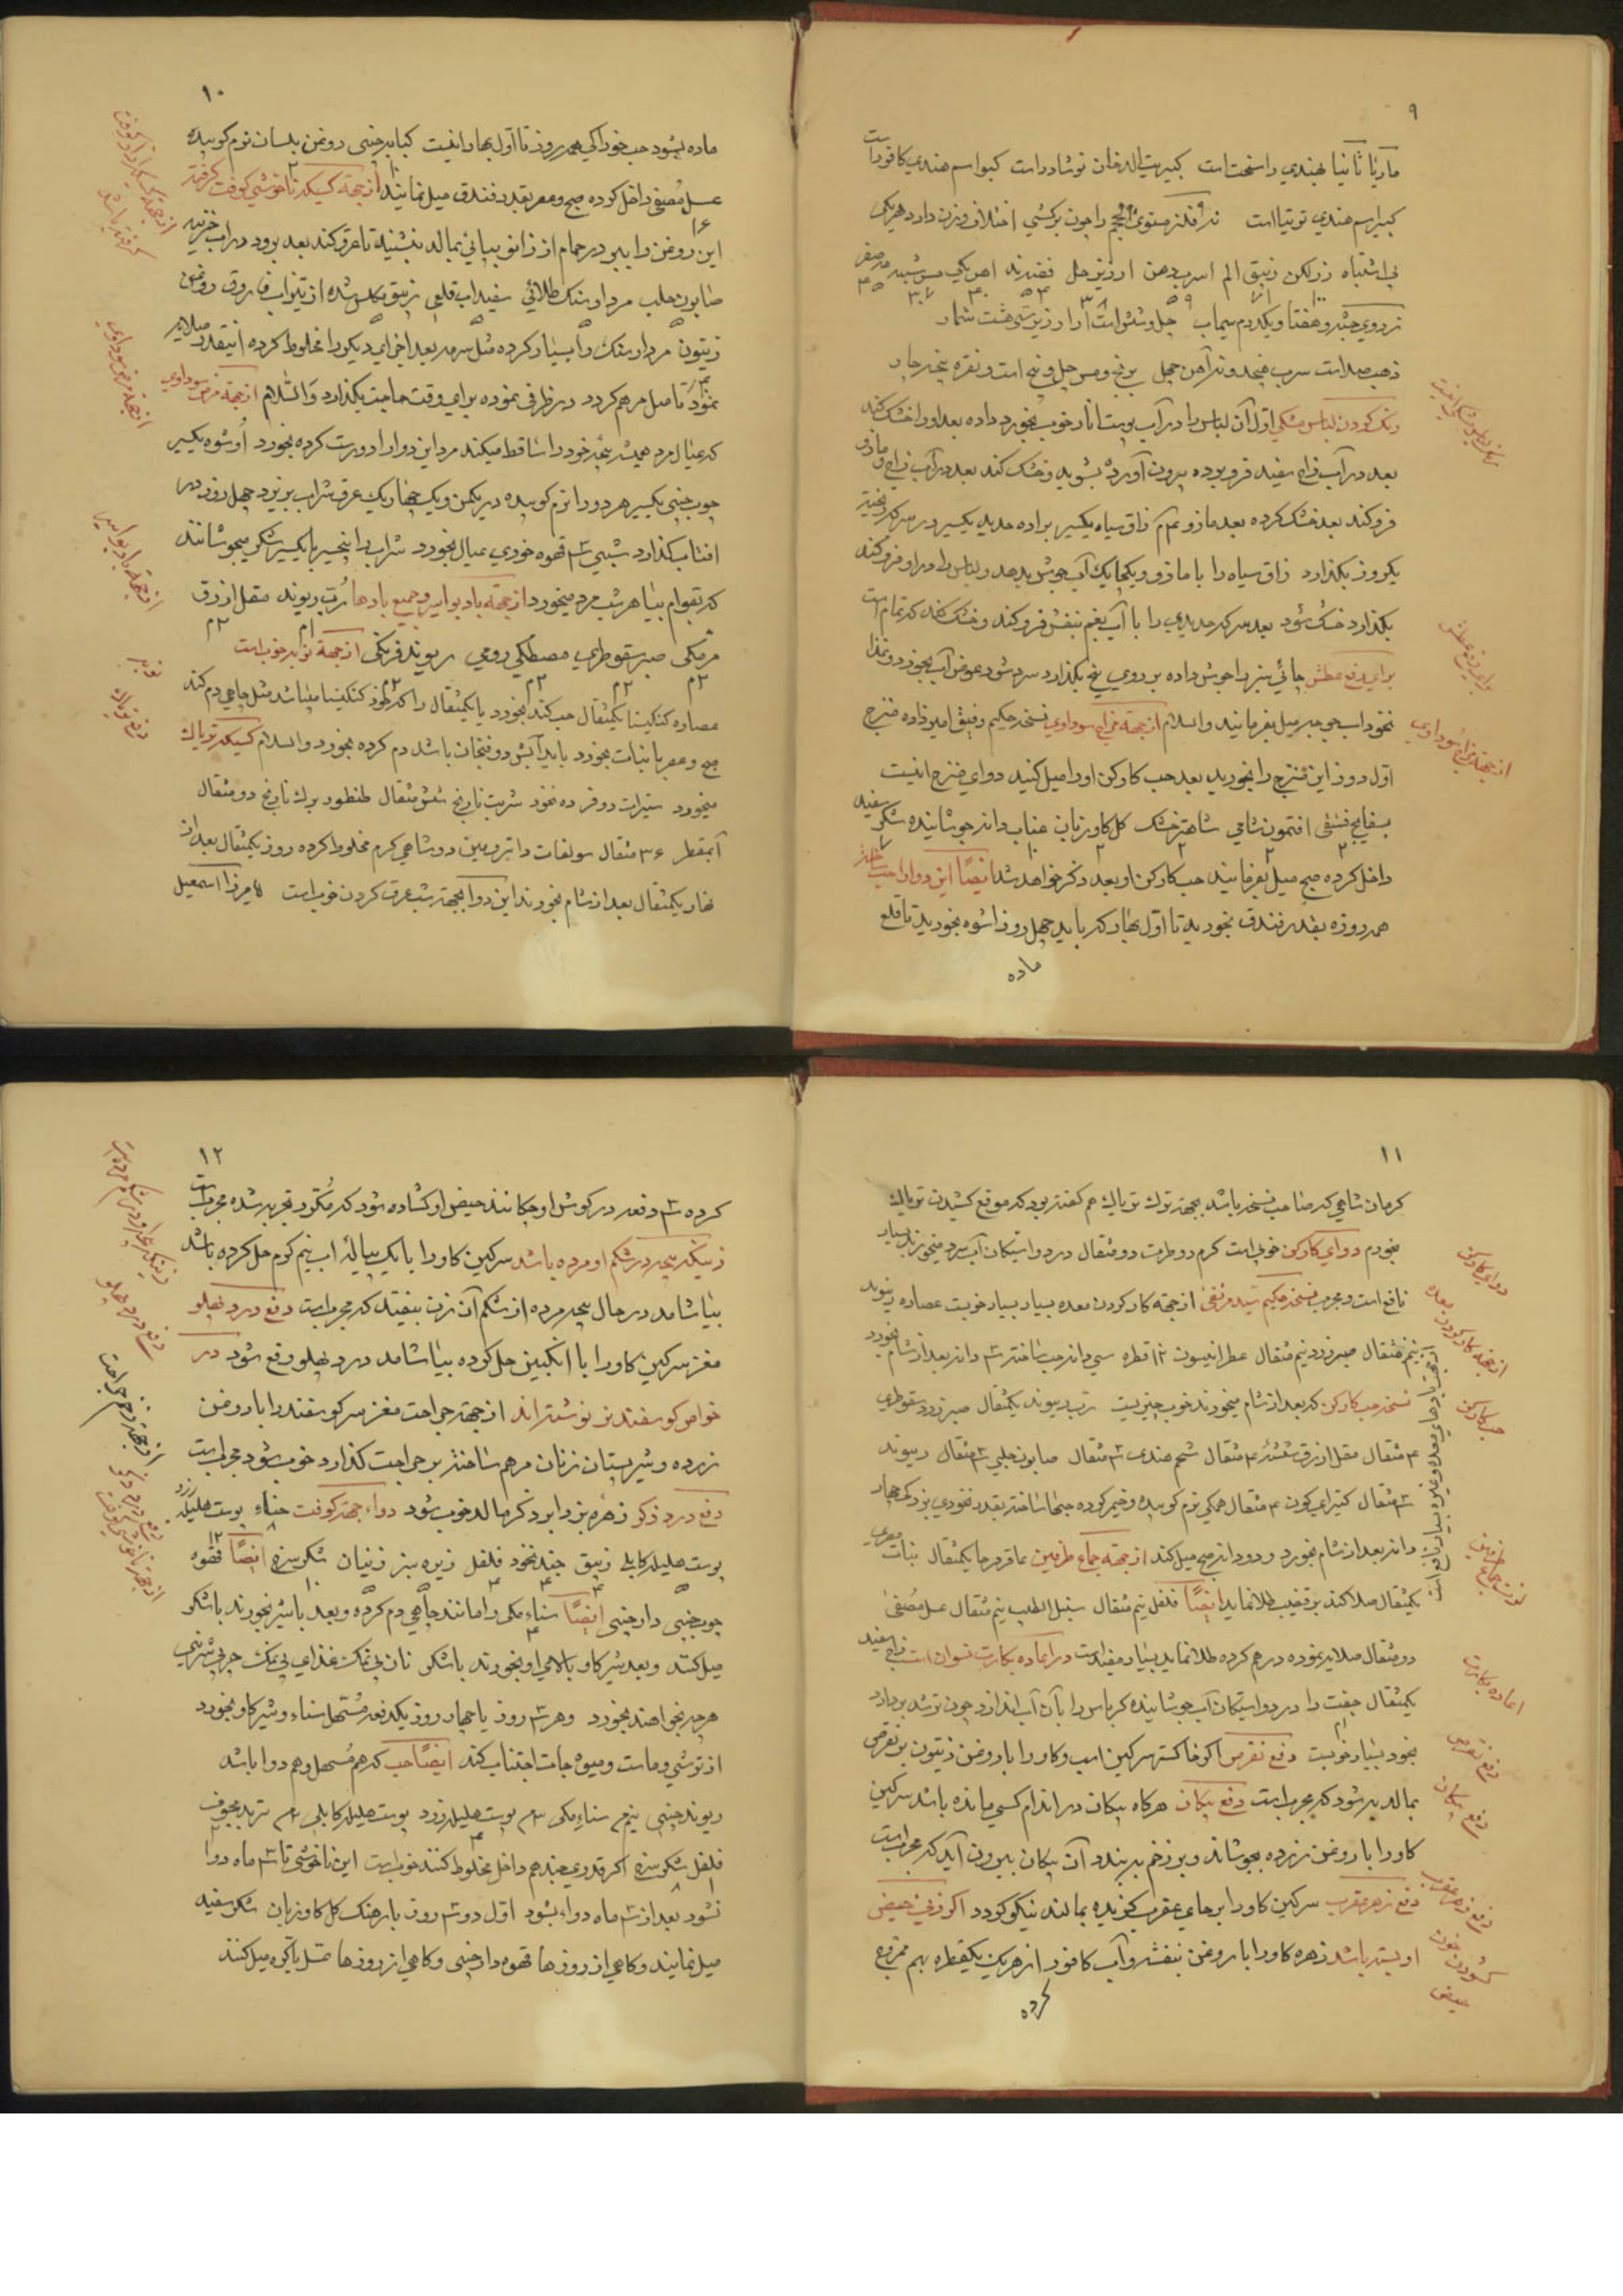 ۹
ماریا ثانیا بهندی راسخت است کبریت الدخان نوشادر است کبوا اسم هندی کافور است
کبیر اسم هندی توتیا است نه فلز مستوی الحجم را چون برکشی اختلاف وزن دارد هر یکی
بی اشتباه زر لکن زیبق الم اسرب دهن ارزیز حل فضه ند اهن یکی مس شبه مه صفر
ز روی جثه و هفتاد و یکدرم سیماب چل و شش است و ارزیز سی و هشت شمار
ذهب صد است سرب پنجه و نه آهن چهل برنج و مس چهل و پنج است و نقره پنجه چار
رنگ کردن لباس مشکی اول آن لباس را در آب پوست انار خوب بخورد داده بعد او را خشک کند
بعد در آب زاج سفید فرو برده بیرون آورده بشوید و خشک کند بعد در آب زاج و مازو
فرو کند بعد خشک کرده بعد مازو زاق سیاه یکسیر براده حدید یکسیر در سرکه ریخته
یکروز بگذارد زاق سیاه را با مازو و یکچاریک آب جوش بدهد و لباس را در او فرو کند
بگذارد خشک شود بعد سرکه حدیدی را با آب بقم بنفش فرو کند و خشک کند که تمام است
برای دفع عطش چائی سبز را جوش داده بر روی یخ بگذارد سرد شود عوض آب بخورد و غذا
نخوداب بی چربی میل بفرمایند والسلام از جهة مزاج سوداوی نسخه حکیم رفیق امیرزاده منضج
اول دو روز این منضج را بخورید بعد حب کارکن او را میل کنید دوای منضج اینست
بسفایج فستقی افتیمون شامی شاهتره خشک گل گاوزبان عناب دانه جوشانیده شکر سفید
داخل کرده صبح میل بفرمایند حب کارکن او بعد ذکر خواهد شد ایضا این دوا را حب ساخته
همه روزه بقدر فندق بخورید تا اول بهار که باید چهل روز اشوه بخورید تا قلع
ماده
رنگ لباس مشکی اینست
برای دفع عطش
از جهة مزاج سوداوی
۱۰
ماده بشود حب خوراکی همه روز تا اول بهار اینست کبابه چینی روغن بلسان نرم کوبیده
عسل مصفی داخل کرده صبح و عصر بقدر فندق میل نمایند از جهة کسیکه ناخوشی کوفت گرفته
این روغن را ببر در حمام از زانو بپائی بمالد بنشیند تا عرق کند بعد برود در آب خزینه
صابون حلب مردار سنگ طلائی سفیداب قلعی زیبق کشته شده از تیزاب فاروق روغن
زیتون مردار سنگ را بسیار کرده مثل سرمه بعد اجزای دیگر را مخلوط کرده اینقدر صلایه
نمود تا مثل مرهم گردد در ظرفی نموده برای وقت حاجت بگذارد والسلام از جهة مرض سوداوی
که عیال مرد همیشه بچه خود را ساقط میکند مرد این دوا را درست کرده بخورد اوشوه یکسیر
چوب چینی یکسیر هر دو را نرم کوبیده در یکمن و یک چهاریک عرق شراب بریزد چهل روز در
افتاب گذارد شبی ۳ قهوه خوری عیال بخورد شراب را پنجسیر با یکسیر شکر بجوشانند
که بقوام بیاید هر شب مرد میخورد از جهة باد بواسیر و جمیع بادها رب ریوند مقل ازرق
مر مکی صبر سقوطرایی مصطکی رومی ریوند فرنگی از جهة نوبه خوب است
عصاره گنگینا یکمثقال حب کند بخورد یا یکمثقال را که خود گنگینا باشد مثل چاهی دم کند
صبح و عصر با نبات بخورد باید آبش دو فنجان باشد دم کرده بخورد والسلام کسیکه تریاک
میخورد سیترات دوفر ده نخود شربت نارنج شش مثقال طنطور برک نارنج دو مثقال
آبمقطر ۳۶ مثقال سولفات داتروپین دو شاهی گرم مخلوط کرده روز یکمثقال بعد از
نهار یکمثقال بعد از شام بخورند این دوا بجهة شب عرق کردن خوب است میرزا اسمعیل
از جهة کسیکه کوفت گرفته باشد
از جهة مرض سوداوی
از جهة باد بواسیر
نوبه
دفع تریاک
۱۱
کرمانشاهی که صاحب نسخه باشد بجهة ترک تریاک هم گفته بود که موقع کشیدن تریاک
بخورم دوای کارکن خوبی است کرم دو طرطر دو مثقال در دو استیکان آب سرد میخورند بسیار
نافع است و مجرب نسخه حکیم سید مرتضی از جهة کار کردن معده بسیار بسیار خوبست عصاره ریوند
نیم مثقال صبر زرد نیم مثقال عطر انیسون ۱۲ قطره سی دانه حب ساخته ۳ دانه بعد از شام بخورد
نسخه حب کارکن که بعد از شام میخورند خوب چیزیست رب ریوند یکمثقال صبر زرد سقوطری
۴ مثقال مقل ازرق شسته ۴ مثقال شحم هندی ۳ مثقال صابون حلبی ۳ مثقال ریوند
۳ مثقال کتیرای کون ۴ مثقال همکی نرم کوبیده و خمیر کرده حبها ساخته بقدر نخودی بزرک چهار
دانه بعد از شام بخورد و دو دانه صبح میل کند از جهة جماع طرفین عاقرقرحا یکمثقال نبات مصری
یکمثقال صلایه کند بر قضیب طلا نماید ایضا فلفل نیم مثقال سنبل الطیب نیم مثقال عسل مصفی
دو مثقال صلایه نموده در هم کرده طلا نماید بسیار مفید است در اعاده بکارت نسوان است زاج سفید
یکمثقال جفت را در دو استیکان آب جوشانیده کرباس را بآن آب اندازد چون ترشه بردارد
بخود بسیار خوبست دفع نقرس اگر خاکستر سرکین اسب و کاو را با روغن زیتون بر نقرس
بمالد به شود که مجرب است دفع پیکان هر گاه پیکان در اندام کسی مانده باشد سرکین
کاو را با روغن زرده بجوشاند و بر زخم بر بندد آن پیکان بیرون آید که مجرب است
دفع زهر عقرب سرکین کاو را بر جای عقرب گزیده بمالند نیکو گردد اگر زنی حیض
او بسته باشد زهره کاو را با روغن بنفشه و آب کافور از هر یک یکقطره بهم ممزوج
کرده
دوای کارکن
از جهة کار کردن معده
حب کارکن
از جهة بادهای معده و غیره بسیار نافع است
لذت جماع طرفین
اعاده بکارت
دفع نقرس
دفع پیکان
دفع زهر عقرب
گشودن خون حیض
۱۲
کرده ۳ دفعه در گوش او چکانند حیض او گشاده شود که مکرر تجربه شده مجرب است
زنیکه بچه در شکم او مرده باشد سرکین کاو را با یک پیاله اب نیم گرم حل کرده باشد
بیاشامد در حال بچه مرده از شکم آن زن بیفتد که مجرب است دفع درد پهلو
مغز سرکین کاو را با انگبین حل کرده بیاشامد درد پهلو رفع شود در
خواص گوسفند نیز نوشته‌اند از جهة جراحت مغز سر گوسفند را با روغن
زرده و شیر پستان زنان مرهم ساخته بر جراحت گذارد خوب شود مجرب است
دفع درد ذکر زهره بز را بر ذکر مالد خوب شود دواء جهة کوفت حناء پوست هلیله زرد
پوست هلیله کابلی زیبق چند نخود فلفل زیره سبز زنیان شکر سرخ ایضا قهوه
چوب چینی دارچینی ایضا سناء مکی را مانند چاهی دم کرده و بعد با شیر بخورند با شکر
میل کنند و بعد شیر کاو بالای او بخورند با شکر نان بی نمک غذای بی نمک چربی شیرینی
هرچه بخواهند بخورد و هر ۳ روز یا چهار روز یکدفعه مسهل سناء و شیر کاو بخورد
از ترشی و ماست و میوه جات اجتناب کند ایضا حب که هم مسهل و هم دوا باشد
ریوند چینی نیم سناء مکی ۳م پوست هلیله زرد پوست هلیله کابلی ۳م تربد مجوف
فلفل شکر سرخ اگر قدری جند هم داخل مخلوط کنند خوب است این ناخوشی تا ۳ ماه دوا
نشود بعد از ۳ ماه دواء بشود اول دو ۳ روز بارهنک گل گاوزبان شکر سفید
میل نمایند و گاهی از روزها قهوه دارچینی و گاهی از روزها عسل با کره میل کنند
زنیکه بچه او در شکم مرده است
دفع درد پهلو
از جهة زخم جراحت
دفع درد ذکر
از جهة ناخوشی کوفت